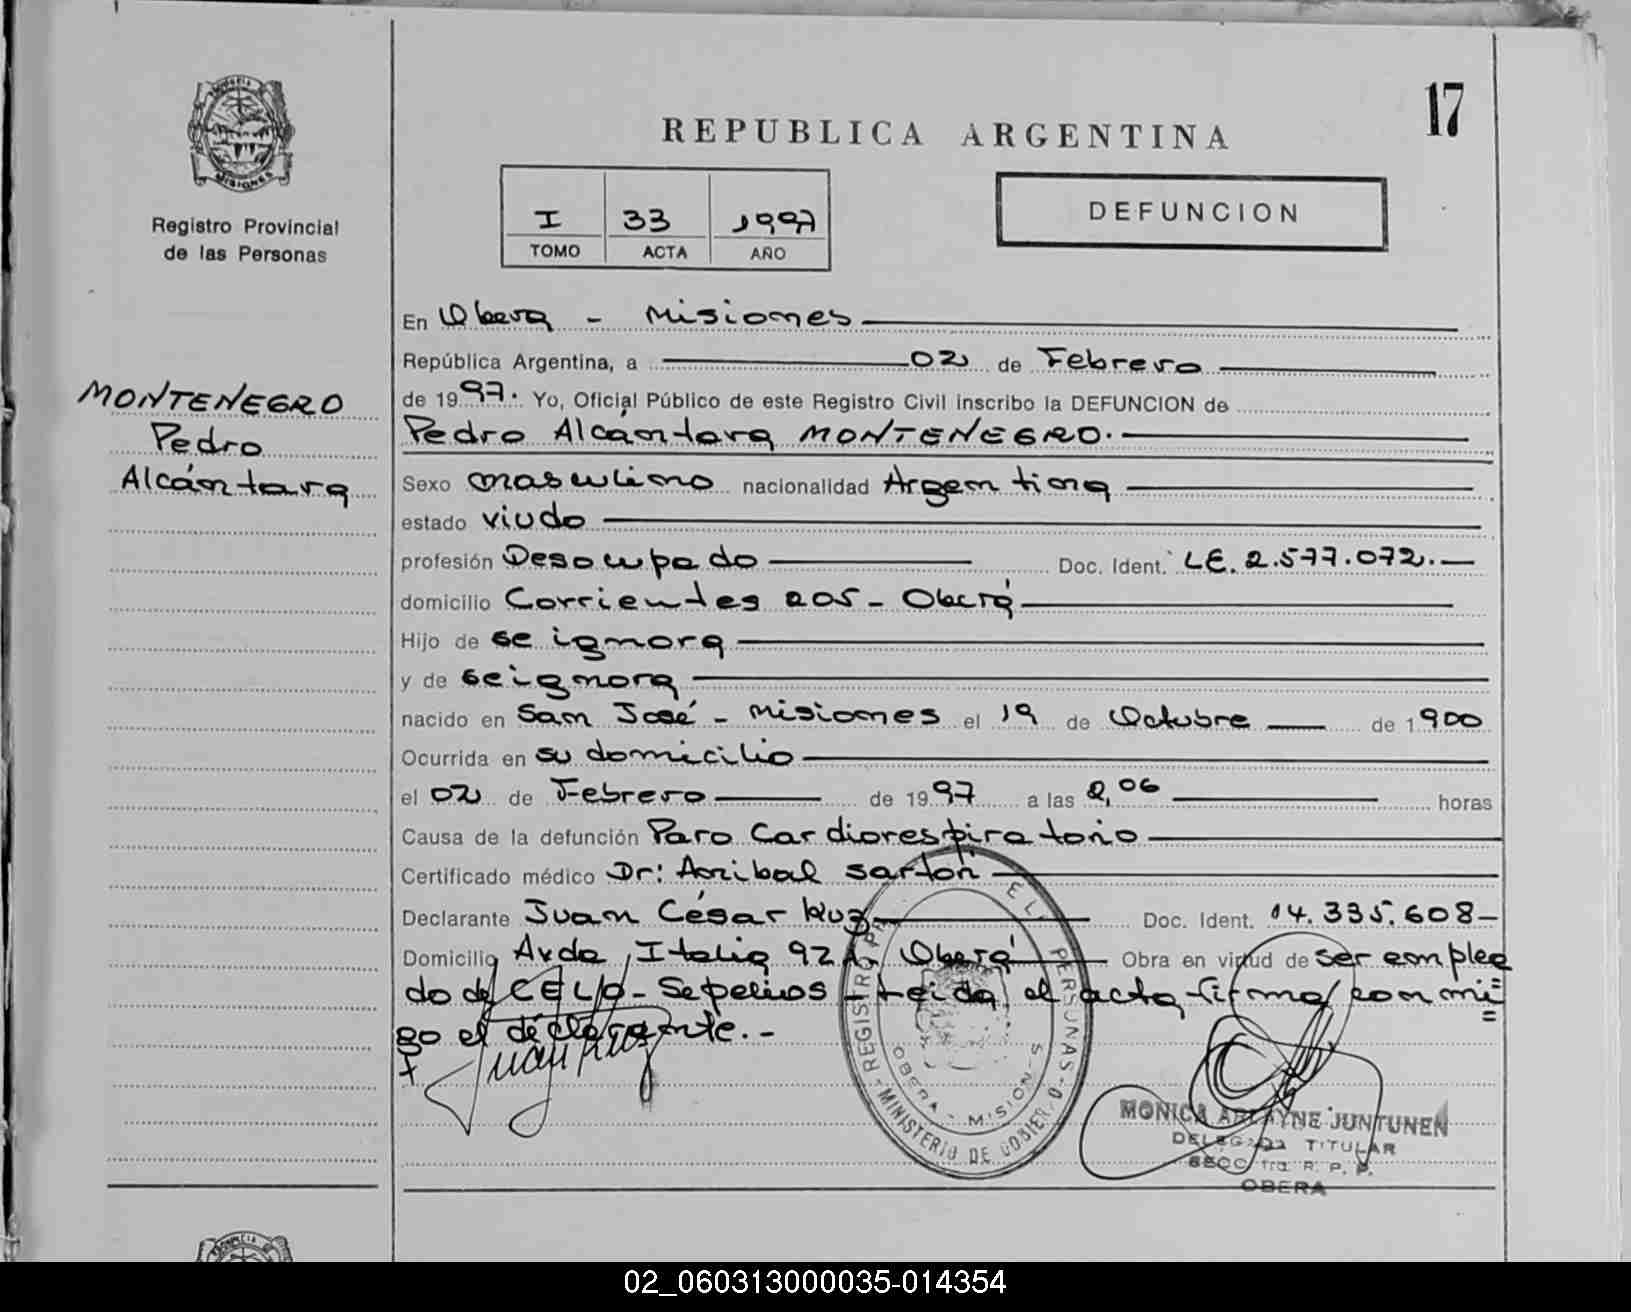 17
REPUBLICA ARGENTINA
MISIONES
Registro Provincial
de las Personas
I 33 1997
TOMO ACTA AÑO
DEFUNCION
MONTENEGRO
Pedro
Alcántara
En Oberá - Misiones
República Argentina, a 02 de Febrero
de 1997. Yo, Oficial Público de este Registro Civil inscribo la DEFUNCION de
Pedro Alcántara MONTENEGRO.
Sexo masculino nacionalidad Argentina
estado viudo
profesión Desocupado Doc. Ident. LE. 2.577.072.-
domicilio Corrientes 205 - Oberá
Hijo de se ignora
y de se ignora
nacido en San José - Misiones el 19 de Octubre de 1900
Ocurrida en su domicilio
el 02 de Febrero de 1997 a las 2,06 horas
Causa de la defunción Paro Cardiorespiratorio
Certificado médico Dr: Anibal Sartori
Declarante Juan César Ruz Doc. Ident. 14.335.608-
Domicilio Avda, Italia Oberá Obra en virtud de ser emplea
do de CELO - Sepelios - Leida el acta firma conmi=
go el declarante.-
REGISTRO PERSONAS
MINISTERIO DE GOBIERNO
OBERA - MISIONES
MONICA JUNTUNEN
DELEGADA TITULAR
SECC R. P. P.
OBERA
02_060313000035-014354